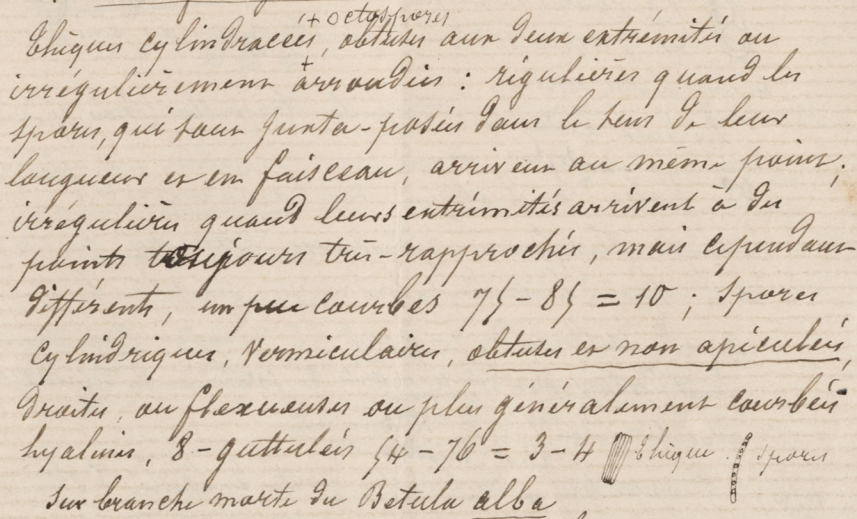 + octospores
Thèques cylindracées, obtuses aux deux extrémités ou
irrégulièrement + arrondies : régulières quand les
spores, qui sont juxta-posées dans le sens de leur
longueur et en faisceau, arrivent au même point ;
irrégulières quand leurs extrémités arrivent à des
points toujours très-rapprochés, mais cependant
différents, un peu courbes 75-85 = 10 ; spores
cylindriques, vermiculaires, obtuses et non apiculées,
droites, ou flexueuses ou plus généralement courbées
hyalines, 8-guttulées 54-76 = 3-4 thèque. spores
sur branche morte du Betula alba